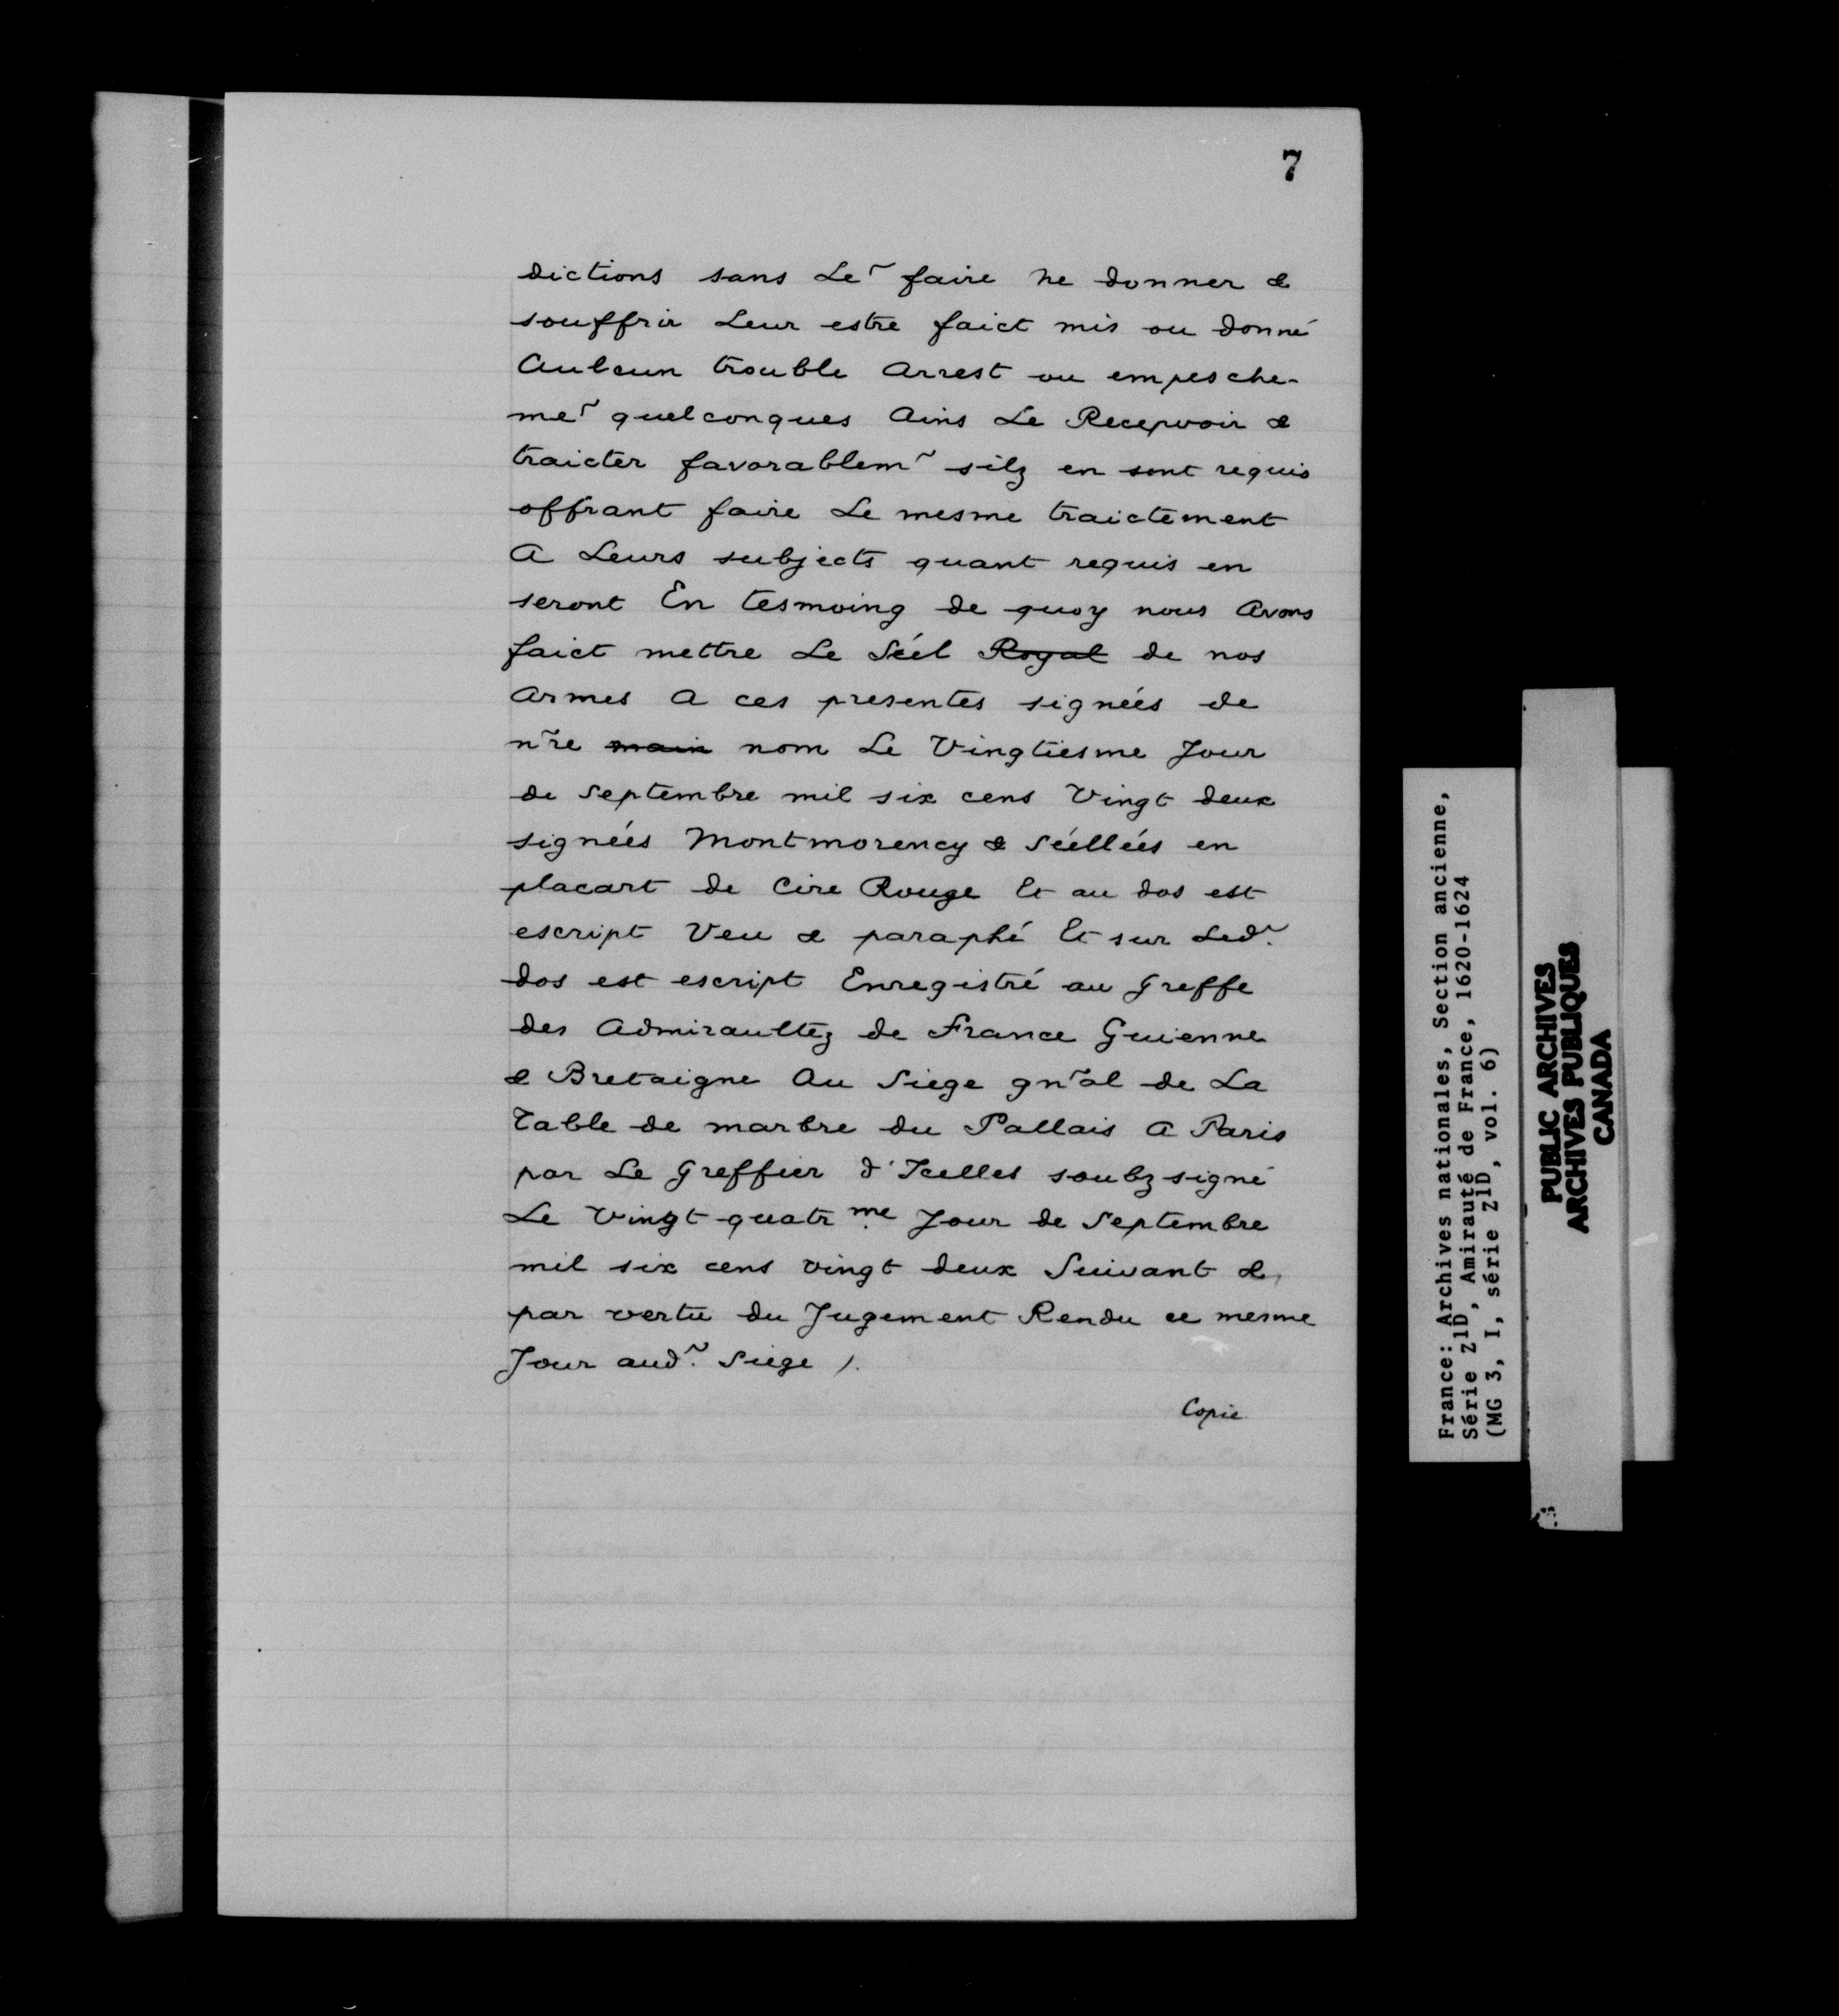 7
dictions sans Le~ faire ne donner &
souffrir Leur estre faict mis ou donné
Aulcun trouble Arrest ou empesche-
me~ quelconques Ains Le Recepvoir &
traicter favorablem~ silz en sont requis
offrant faire Le mesme traictement
A Leurs subjects quant requis en
seront En tesmoing de quoy nous Avons
faict mettre Le Séél Royal de nos
Armes A ces presentes signéés de
n~re main nom Le Vingtiesme Jour
de Septembre mil six cens Vingt deux
signéés Montmorency & Séélléés en
placart de Cire Rouge Et au dos est
escript Veu & paraphé Et sur Led~.
dos est escript Enregistré au Greffe
des Admiraultez de France Guienne
& Bretaigne Au Siege gn~al de La
Table de marbre du Pallais A Paris
par Le Greffier d'Icelles soubzsigné
Le Vingt-quatr.me Jour de Septembre
mil six cens vingt deux Suivant &
par vertu du Jugement Rendu ce mesme
Jour aud~. Siege /.
Copie
France: Archives nationales, Section ancienne,
Série Z1D, Amirauté de France, 1620-1624
(MG 3, I, série Z1D, vol. 6)
PUBLIC ARCHIVES
ARCHIVES PUBLIQUES
CANADA